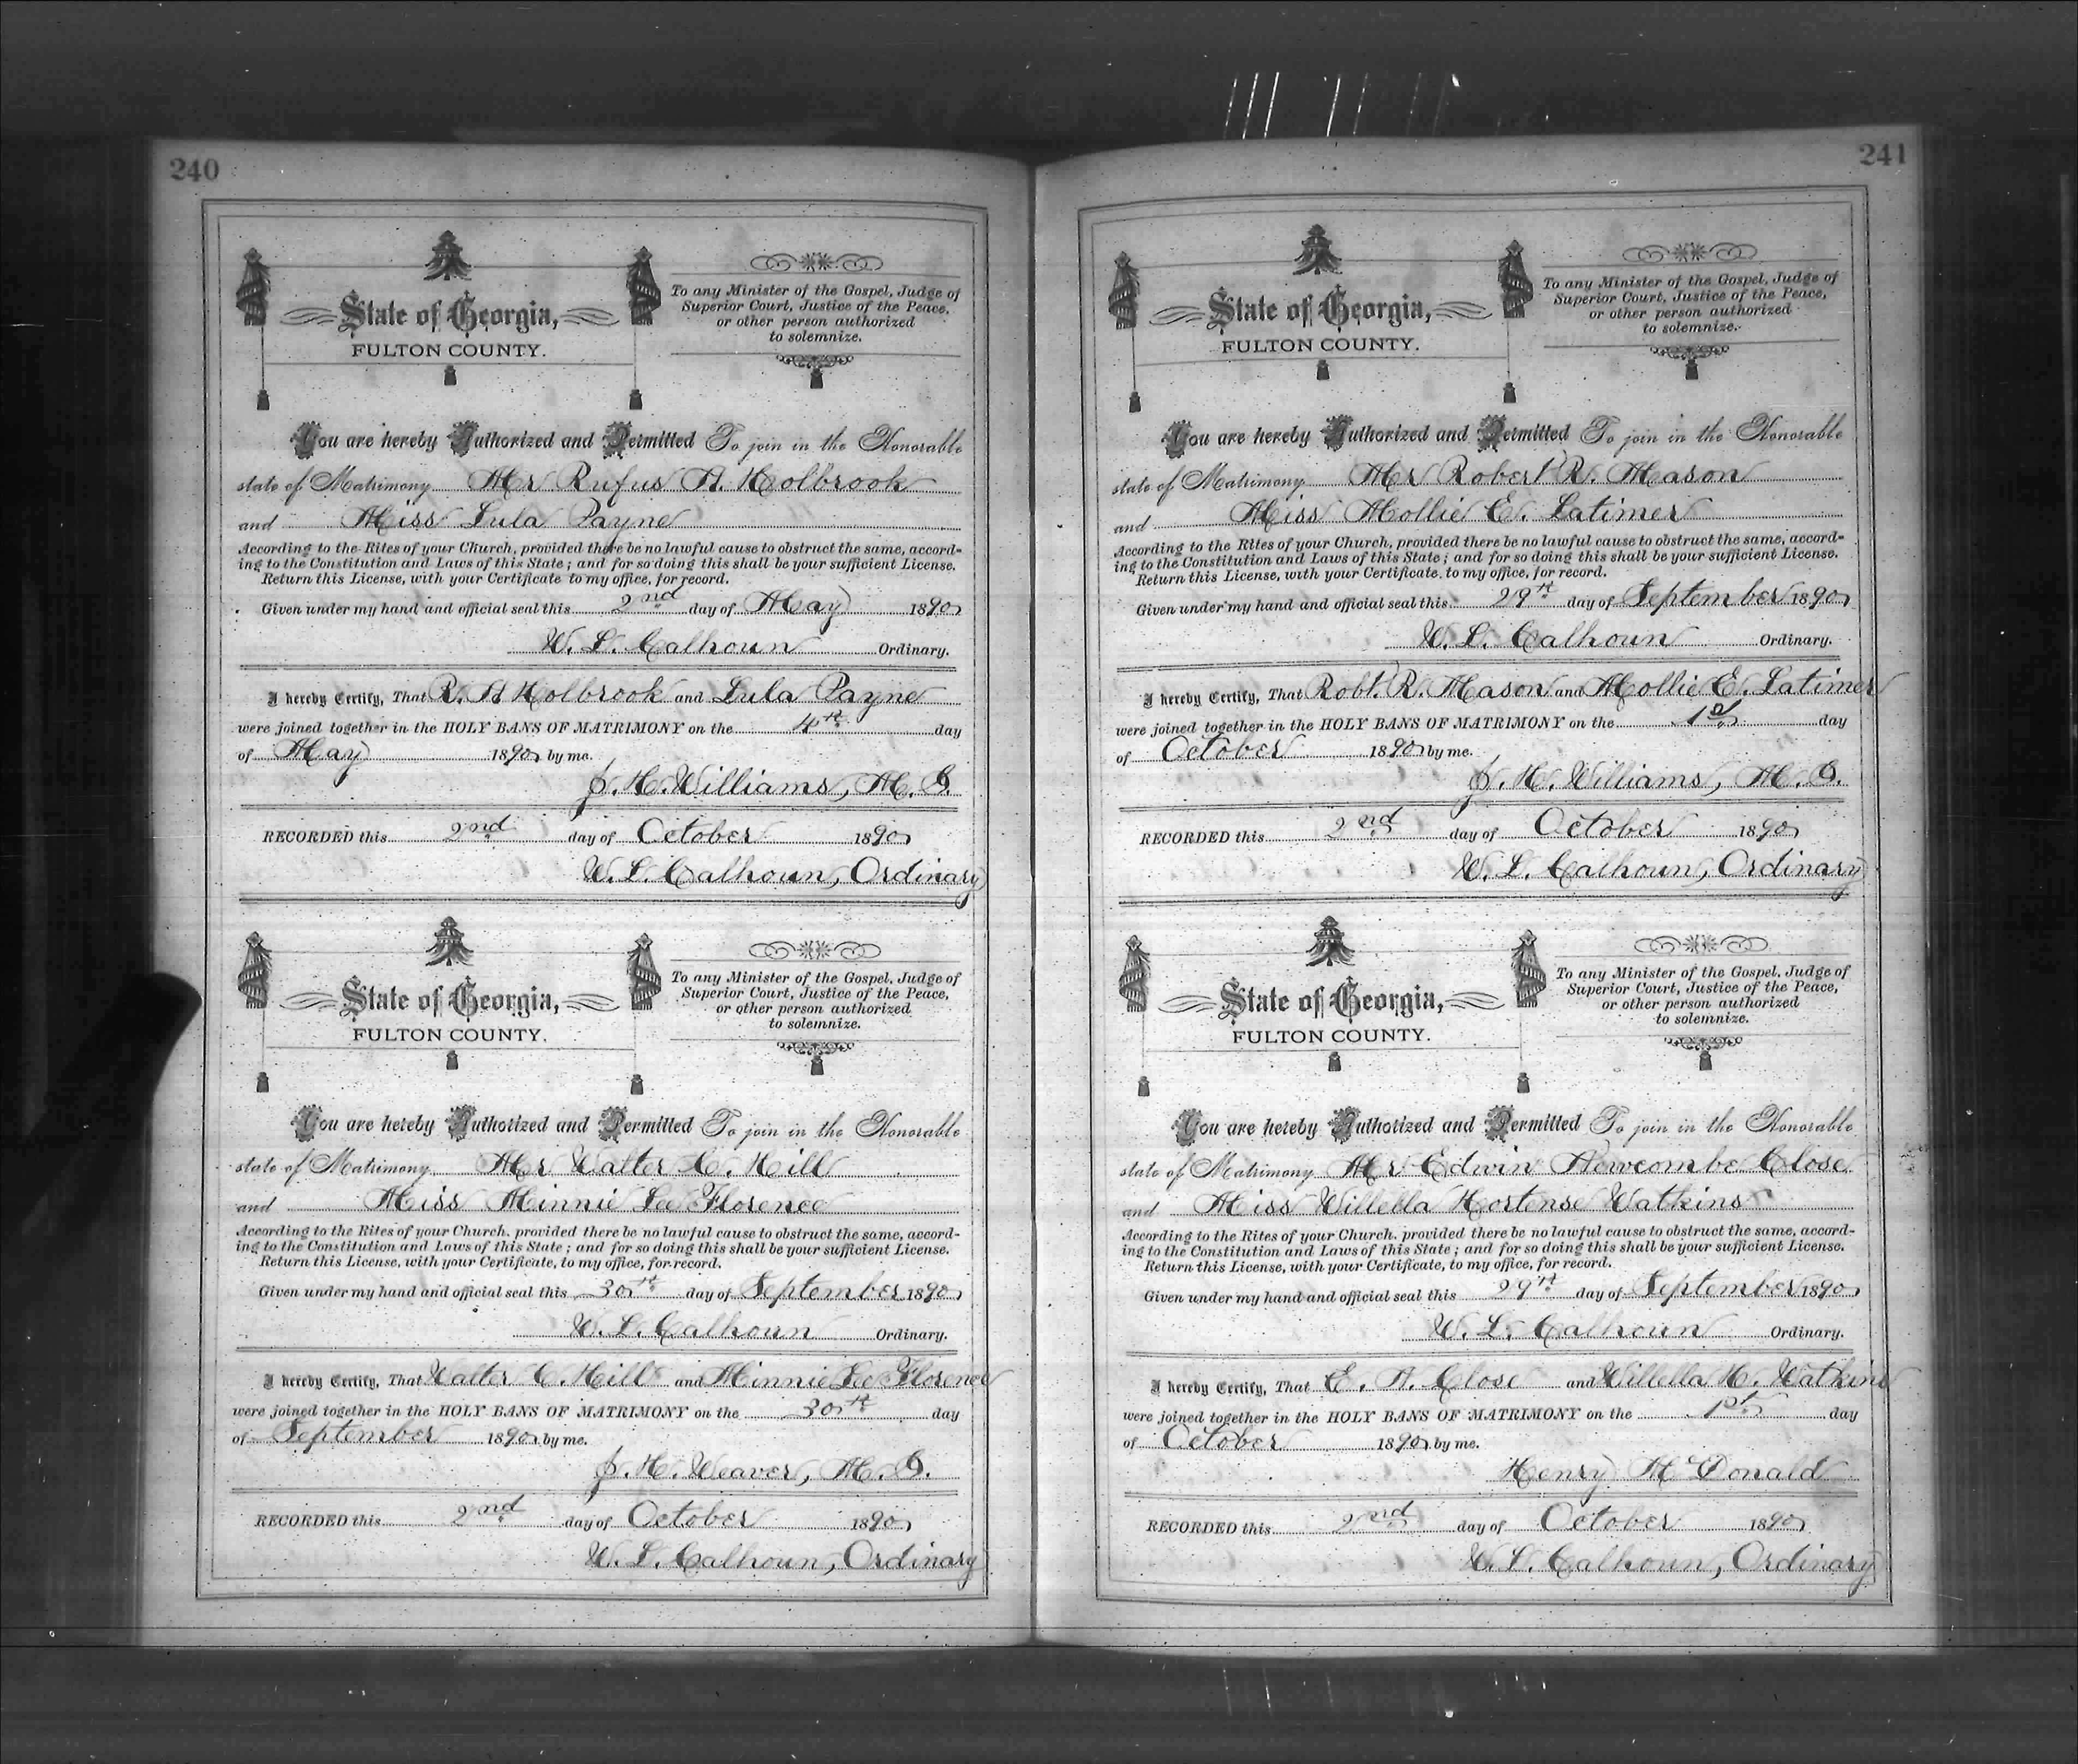 240
State of Georgia,
FULTON COUNTY.
To any Minister of the Gospel, Judge of
Superior Court, Justice of the Peace,
or other person authorized
to solemnize.
You are hereby Authorized and Permitted To join in the Honorable
state of Matrimony Mr Rufus A. Holbrook
and Miss Lula Payne
According to the Rites of your Church, provided there be no lawful cause to obstruct the same, accord-
ing to the Constitution and Laws of this State; and for so doing this shall be your sufficient License.
Return this License, with your Certificate to my office, for record.
Given under my hand and official seal this 2nd day of May 1890
W. L. Calhoun Ordinary.
I hereby Certify, That R. A Holbrook and Lula Payne
were joined together in the HOLY BANS OF MATRIMONY on the 4th day
of May 1890 by me.
J. H. Williams, M. G.
RECORDED this 2nd day of October 1890
W. L. Calhoun, Ordinary
State of Georgia,
FULTON COUNTY.
To any Minister of the Gospel, Judge of
Superior Court, Justice of the Peace,
or other person authorized
to solemnize.
You are hereby Authorized and Permitted To join in the Honorable
state of Matrimony Mr Walter C. Hill
and Miss Minnie Lee Florence
According to the Rites of your Church, provided there be no lawful cause to obstruct the same, accord-
ing to the Constitution and Laws of this State; and for so doing this shall be your sufficient License.
Return this License, with your Certificate, to my office, for record.
Given under my hand and official seal this 30th day of September 1890
W. L. Calhoun Ordinary.
I hereby Certify, That Walter C. Hill and Minnie Lee Florence
were joined together in the HOLY BANS OF MATRIMONY on the 30th day
of September 1890 by me.
J. H. Weaver, M. G.
RECORDED this 2nd day of October 1890
W. L. Calhoun, Ordinary
241
State of Georgia,
FULTON COUNTY.
To any Minister of the Gospel, Judge of
Superior Court, Justice of the Peace,
or other person authorized
to solemnize.
You are hereby Authorized and Permitted To join in the Honorable
state of Matrimony Mr Robert R. Mason
and Miss Mollie E. Latimer
According to the Rites of your Church, provided there be no lawful cause to obstruct the same, accord-
ing to the Constitution and Laws of this State; and for so doing this shall be your sufficient License.
Return this License, with your Certificate, to my office, for record.
Given under my hand and official seal this 29th day of September 1890
W. L. Calhoun Ordinary.
I hereby Certify, That Robt. R. Mason and Mollie E. Latimer
were joined together in the HOLY BANS OF MATRIMONY on the 1st day
of October 1890 by me.
J. H. Williams, M. G.
RECORDED this 2nd day of October 1890
W. L. Calhoun, Ordinary
State of Georgia,
FULTON COUNTY.
To any Minister of the Gospel, Judge of
Superior Court, Justice of the Peace,
or other person authorized
to solemnize.
You are hereby Authorized and Permitted To join in the Honorable
state of Matrimony Mr Edwin Newcombe Close
and Miss Willella Hortense Watkins
According to the Rites of your Church, provided there be no lawful cause to obstruct the same, accord-
ing to the Constitution and Laws of this State; and for so doing this shall be your sufficient License.
Return this License, with your Certificate, to my office, for record.
Given under my hand and official seal this 29th day of September 1890
W. L. Calhoun Ordinary.
I hereby Certify, That E. N. Close and Willella H. Watkins
were joined together in the HOLY BANS OF MATRIMONY on the 1st day
of October 1890 by me.
Henry McDonald
RECORDED this 2nd day of October 1890
W. L. Calhoun, Ordinary